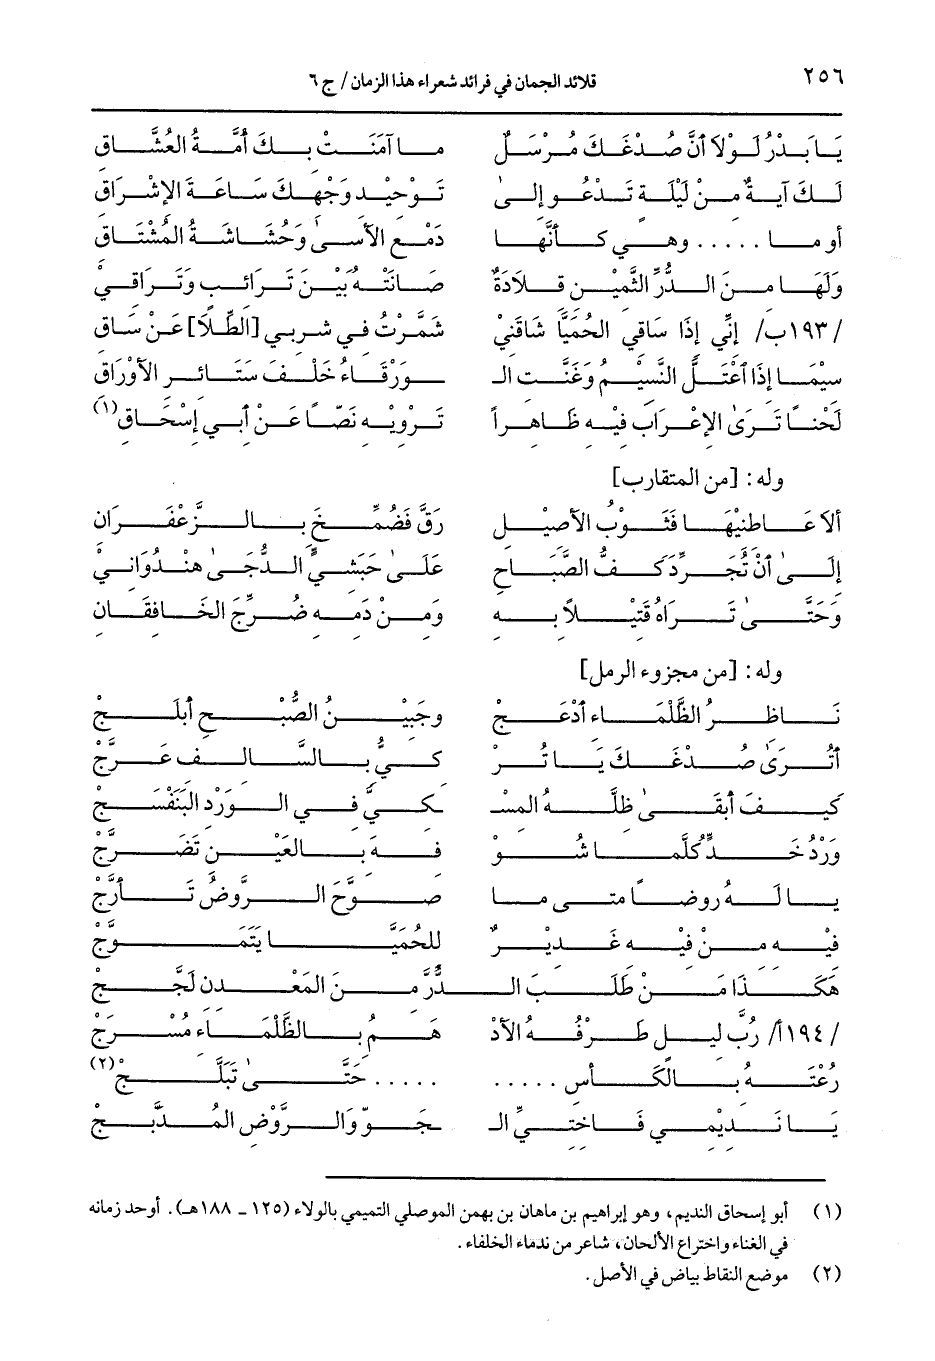 ٢٥٦ قلائد الجمان في فرائد شعراء هذا الزمان / ج ٦
يَا بَدْرُ لَوْلاَ أنَّ صُدْغَكَ مُرْسَلٌ مَا آمَنَتْ بِكَ أمَّةُ العُشَّاقِ
لَكَ آيَةٌ مِنْ لَيْلَةٍ تَدْعُو إلىٰ تَوْحِيْدِ وَجْهِكَ سَاعَةَ الإشْرَاقِ
أو ما ..... وهي كَأنَّها دَمْعِ الأسىٰ وَحُشَاشَةُ المُشْتَاقِ
وَلَهَا مِنَ الدُّرِّ الثَّمِيْنِ قِلاَدَةٌ صَانَتْهُ بَيْنَ تَرَائِبٍ وَتَرَاقِيْ
/١٩٣ب/ إنِّي إذَا سَاقِي الحُمَيَّا شَاقَنِيْ شَمَّرْتُ في شربي [الطِّلاَ] عَنْ سَاقِ
سِيَّمَا إذَا اعْتَلَّ النَّسِيْمُ وَغَنَّتِ الـ ـوَرْقَاءُ خَلْفَ سَتَائِرِ الأوْرَاقِ
لَحْناً تَرَىٰ الإعْرَابَ فِيْهِ ظَاهِراً تَرْوِيْهِ نَصّاً عَنْ أبي إسْحَاقِ(١)
وله: [من المتقارب]
ألاَ عَاطِنِيْهَا فَثَوْبُ الأصِيْلِ رَقَّ فَضُمِّخَ بِالزَّعْفَرَانِ
إلىٰ أنْ تُجَرِّدَ كَفُّ الصَّبَاحِ عَلَىٰ حَبَشِيِّ الدُّجَىٰ هِنْدُوَانِيْ
وَحَتَّىٰ تَرَاهُ قَتِيْلاً بِهِ وَمِنْ دَمِهِ ضُرِّجَ الخَافِقَانِ
وله: [من مجزوء الرمل]
نَاظِرُ الظَّلْمَاءِ أدْعَجْ وجَبِيْنُ الصُّبْحِ أبْلَجْ
أتُرَىٰ صُدْغَكَ يَا تُرْ كيُّ بِالسَّالِفِ عَرَّجْ
كَيْفَ أبْقَىٰ ظِلَّهُ المِسْـ ـكِيَّ في الوَرْدِ البَنَفْسَجْ
وَرْدُ خَدٍّ كُلَّمَا شُو فِهَ بِالعَيْنِ تَضَرَّجْ
يا لَهُ روضاً متى ما صَوَّحَ الرَّوضُ تَأرَّجْ
فِيْهِ مِنْ فِيْهِ غَدِيْرٌ للحُمَيَّا يَتَمَوَّجْ
هَكَذَا مَنْ طَلَبَ الدُّرَّ مِنَ المَعْدِنِ لَجَّجْ
/١٩٤أ/ رُبَّ لَيْلٍ طَرْفُهُ الأدْ هَمُ بِالظَّلْمَاءِ مُسْرَجْ
رُعْتَهُ بِالكَأسِ ..... ..... حَتَّىٰ تَبَلَّجْ(٢)
يَا نَدِيْمِي فَاخْتِيِّ الـ ـجَوِّ وَالرَّوْضِ المُدَبَّجْ
(١) أبو إسحاق النديم، وهو إبراهيم بن ماهان بن بهمن الموصلي التميمي بالولاء (١٢٥ - ١٨٨هـ). أوحد زمانه
في الغناء واختراع الألحان، شاعر من ندماء الخلفاء.
(٢) موضع النقاط بياض في الأصل.